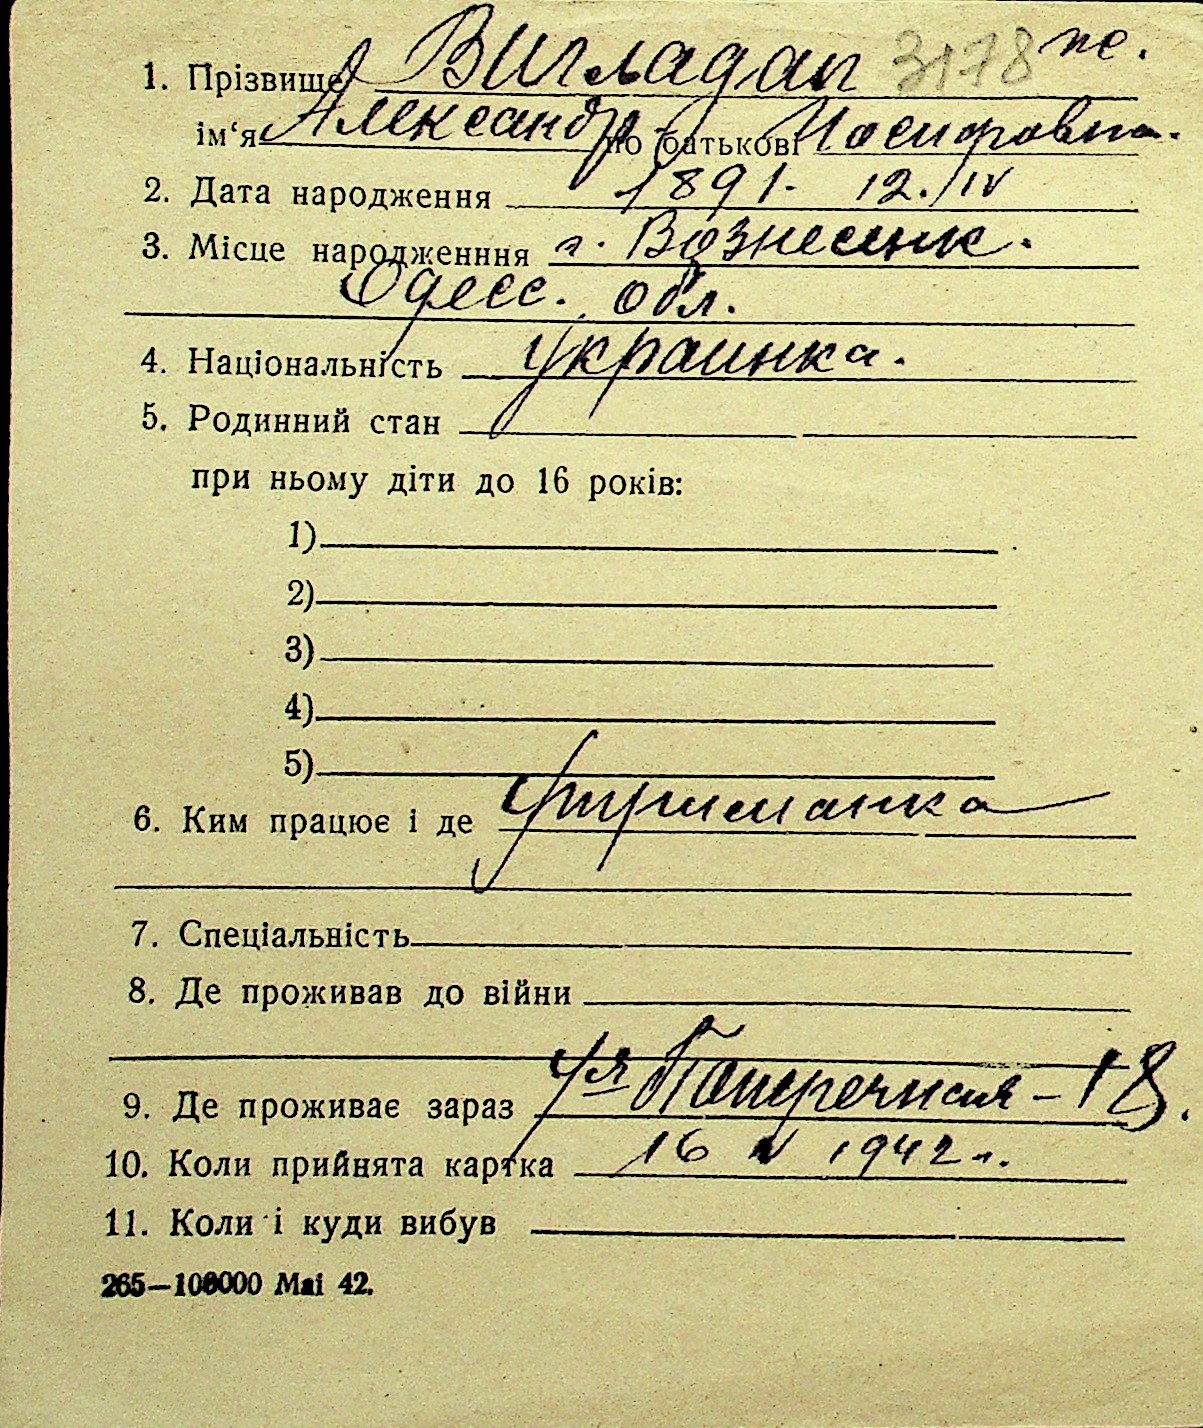 1. Прізвище Вигладап 3178 же.
ім‘я Александр по батькові Иосифовна.
2. Дата народження 1891. 12./IV
3. Місце народженння г. Вознесенк.
Одесс. обл.
4. Національність Украинка.
5. Родинний стан
при ньому діти до 16 років:
1)
2)
3)
4)
5)
6. Ким працює і де Утриманка
7. Спеціальність
8. Де проживав до війни
9. Де проживає зараз ул Поперечная – 18.
10. Коли прийнята картка 16 V 1942 г.
11. Коли і куди вибув
265—100000 Маі 42.